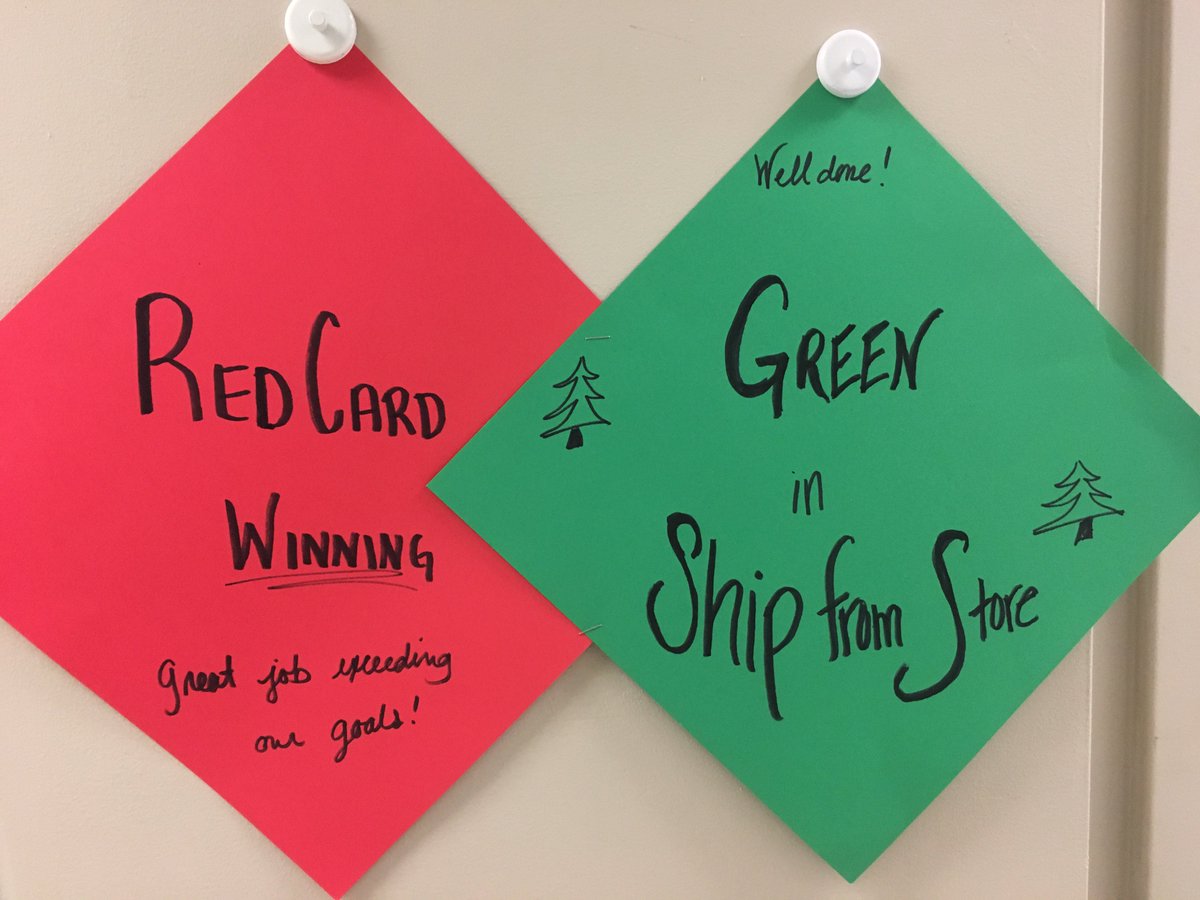 RedCard
Winning
Great job exceeding
our goals!
Well done!
Green
in
Ship from Store